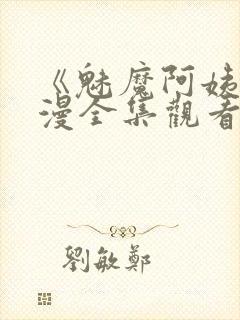 《魅魔阿姨
漫全集觀看
劉敏鄭